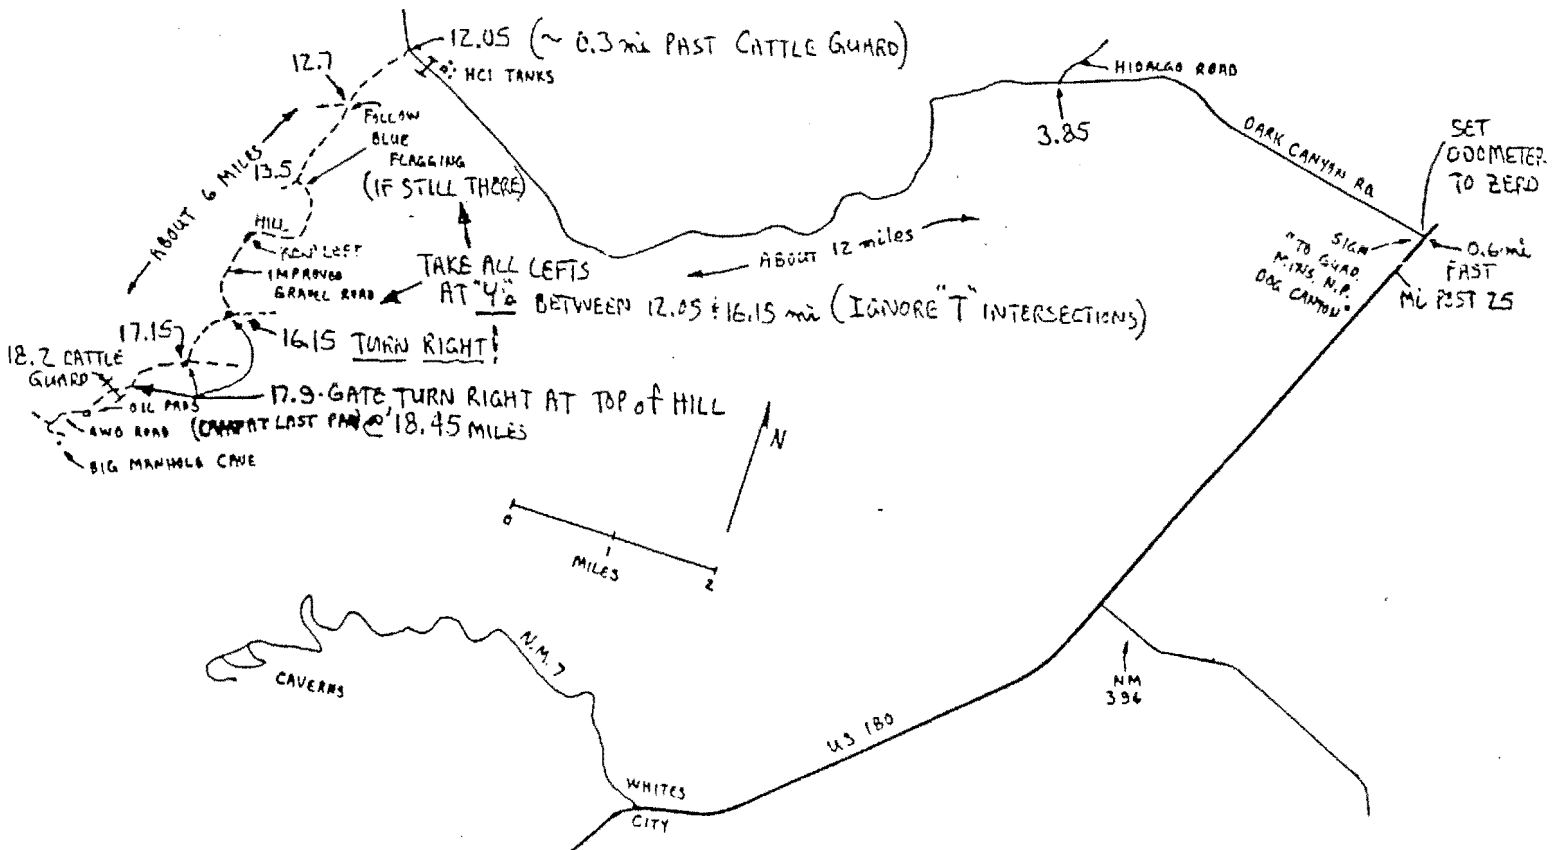 12.05 (~ 0.3 mi PAST CATTLE GUARD)
HCl TANKS
12.7
FOLLOW
BLUE
FLAGGING
(IF STILL THERE)
ABOUT 6 MILES
13.5
HILL
LEFT
IMPROVED
GRAVEL ROAD
TAKE ALL LEFTS
AT "Y"s BETWEEN 12.05 & 16.15 mi (IGNORE "T" INTERSECTIONS)
16.15 TURN RIGHT!
17.15
18.2 CATTLE
GUARD
17.9-GATE TURN RIGHT AT TOP of HILL
OIL PADS
4WD ROAD (CAMP AT LAST PAD @ 18.45 MILES
BIG MANHOLE CAVE
HIDALGO ROAD
3.85
DARK CANYON RD.
SET
ODOMETER
TO ZERO
ABOUT 12 miles
SIGN
"TO GUAD.
MTNS. N.P.
DOG CANYON"
0.6 mi
PAST
Mi POST 25
N
0
1
2
MILES
N.M. 7
CAVERNS
NM
396
US 180
WHITES
CITY